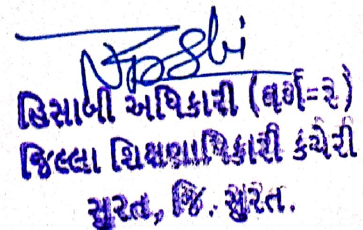 હિસાબી અધિકારી (વર્ગ=૨)
જિલ્લા શિક્ષણાધિકારી કચેરી
સુરત, જિ. સુરત.